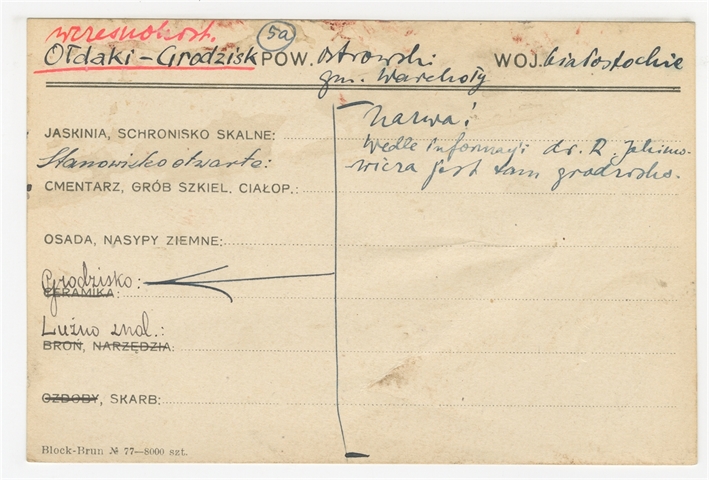 wczesnohist. 5a
Ołdaki-Grodzisk POW. ostrowski WOJ. białostockie
gm. Warchoły
Nazwa!
JASKINIA, SCHRONISKO SKALNE:
Wedle informacji dr. R. Jakimo-
Stanowisko otwarte:
wicza jest tam grodzisko.
CMENTARZ, GRÓB SZKIEL. CIAŁOP.:
OSADA, NASYPY ZIEMNE:
Grodzisko:
CERAMIKA:
Luźno znal.:
BROŃ, NARZĘDZIA:
OZDOBY, SKARB:
Block-Brun № 77—8000 szt.